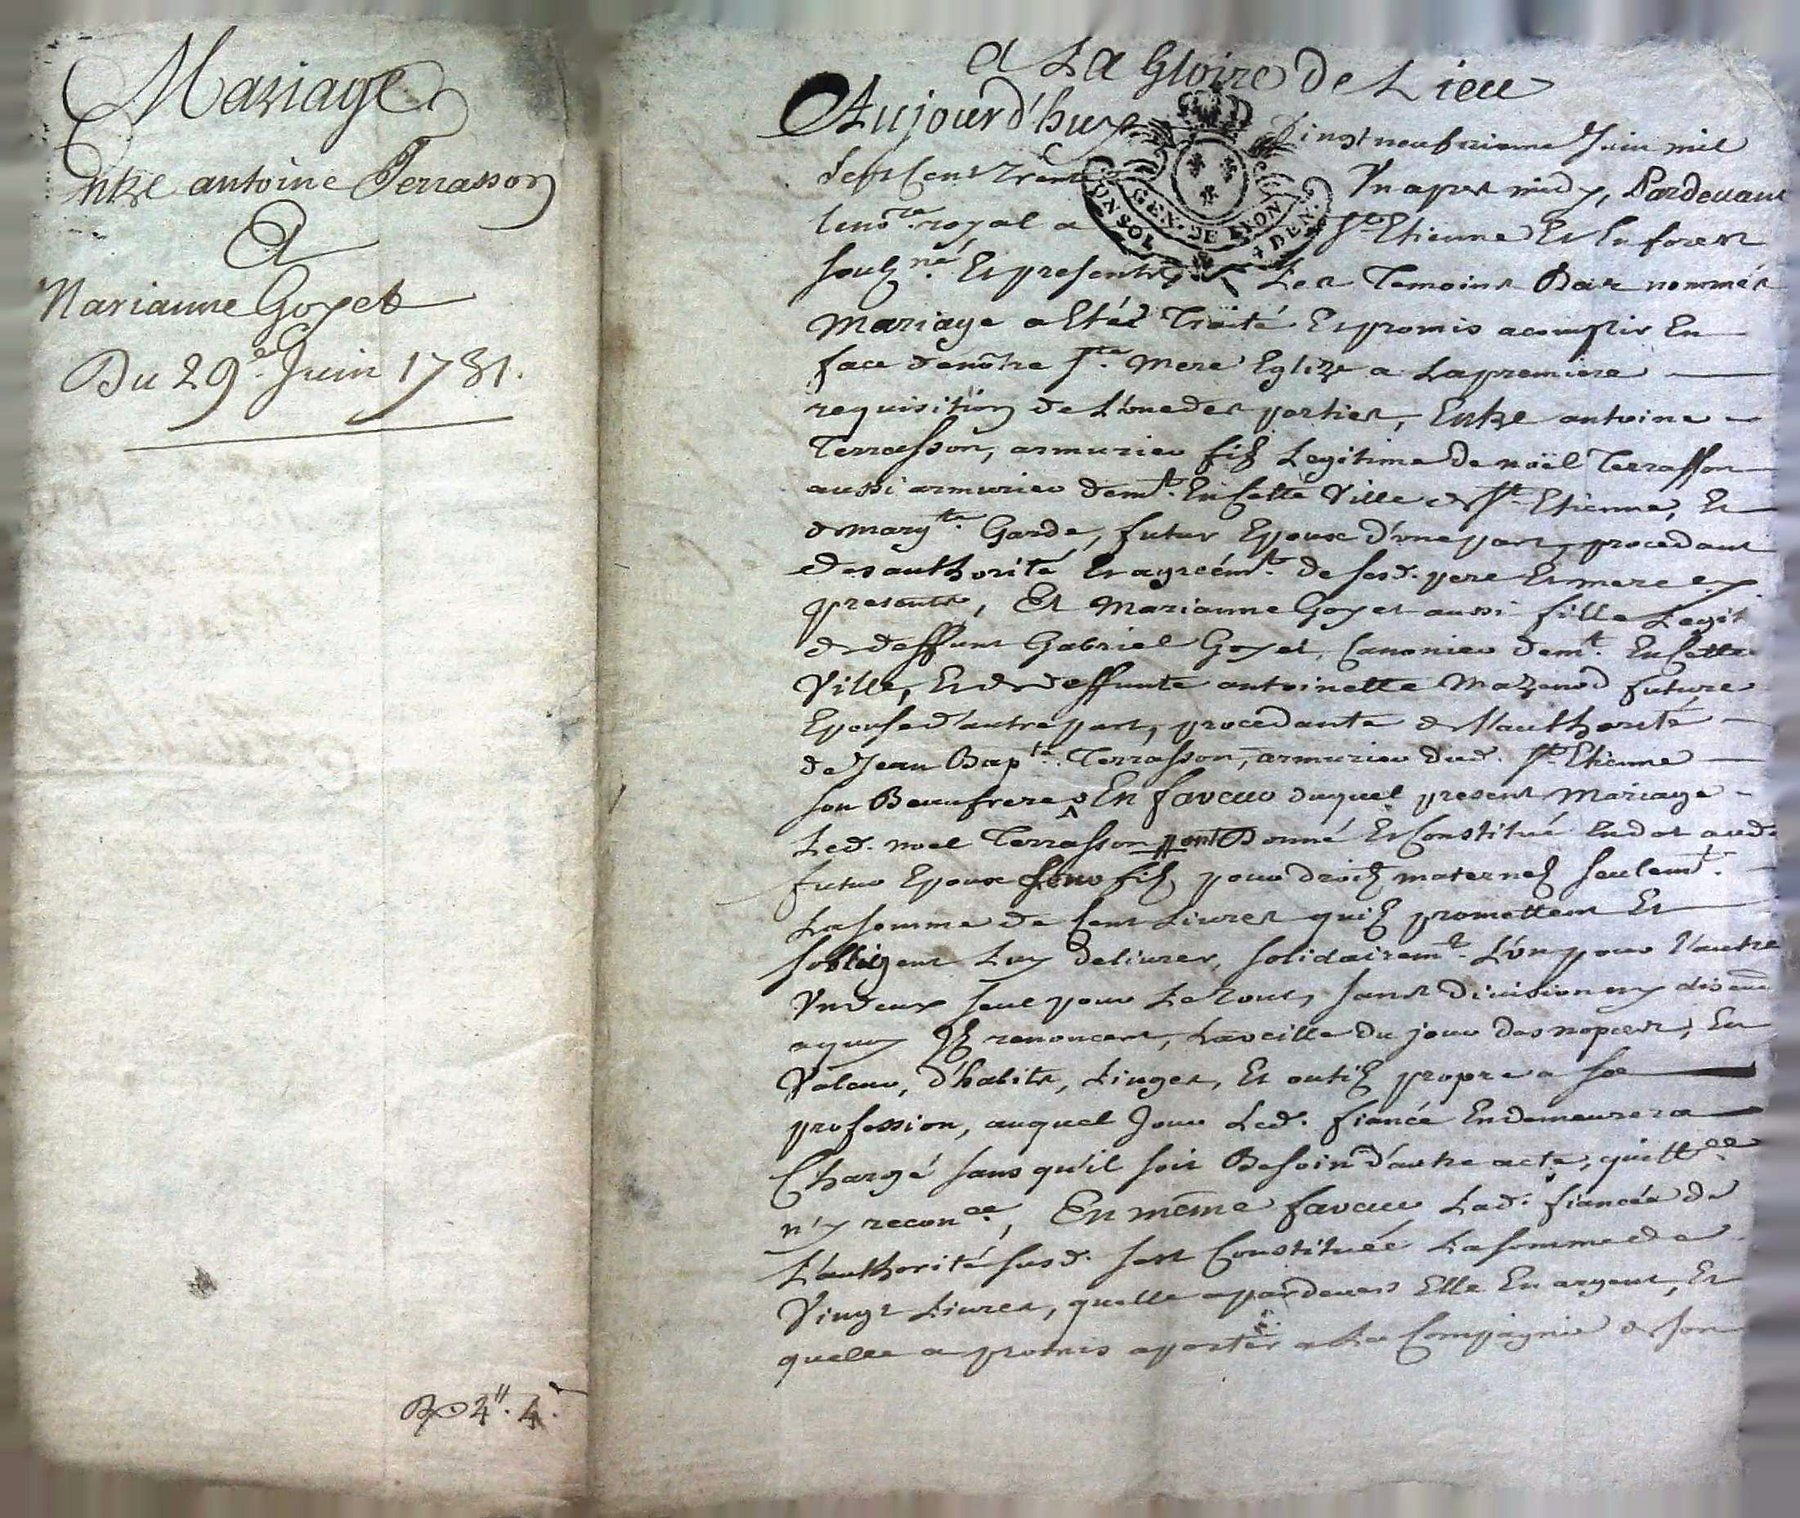 Mariage
Entre antoine Terrasson
Et
Marianne Goyet
Du 29e. Juin 1731.
A La Gloire de Dieu
Aujourd'huy Vingt neufvieme Juin mil
Sept Cent Trente Un apres midy, Pardevant
le nore. royal a St. Etienne Et En forest
soulzné. Et presents, Les Temoins Bas nommés
GEN. DE LYON
UN SOL 4 DEN.
Mariage a Eté Traité Et promis acomplir En
face de nôtre Ste. Mere Eglize a La premiere
requisition de L'une des parties, Entre antoine
Terrasson, armurier filz Legitime de noël Terrasson
aussi armurier demt. En Cette Ville de St. Etienne, Et
de margte. Garde, futur Epoux d'une part, procedant
de authorité Et agréemt. de sesd. pere Et mere cy
presents, Et Marianne Goyet aussi fille Legit
de deffunt Gabriel Goyet, Canonier demt. En Cette
Ville, Et de deffunte antoinette Mazenod future
Epouse d'autre part, procedante de l'authorité
de Jean Bapte. Terrasson, armurier dud. St. Etienne
son Beaufrere, En faveur duquel present Mariage
Led. noel Terrasson ont Donné Et Constitué En dot aud.
futur Epoux leur filz pour droitz maternelz seulemt.
La somme de Cent Livres quilz promettent Et
s'obligent Luy delivrer, solidairemt. L'un pour l'autre
Un d'eux seul pour Le Tout, sans division ny
a quoy Ilz renoncent, La veille du jour des nopces, En
Valeur, d'habits, Linges, Et outilz propre a sa
profession, auquel Jour Led. fiancé En demeurera
Chargé sans qu'il soit Besoin d'autre acte, quittce.
n'y reconce., En même faveur Lad. fiancée de
L'authorité susd. sest Constituée La somme de
Vingt Livres, quelle a pardevers Elle En argent, Et
quelle a promis aporter a La Compagnie de son
4". 4.